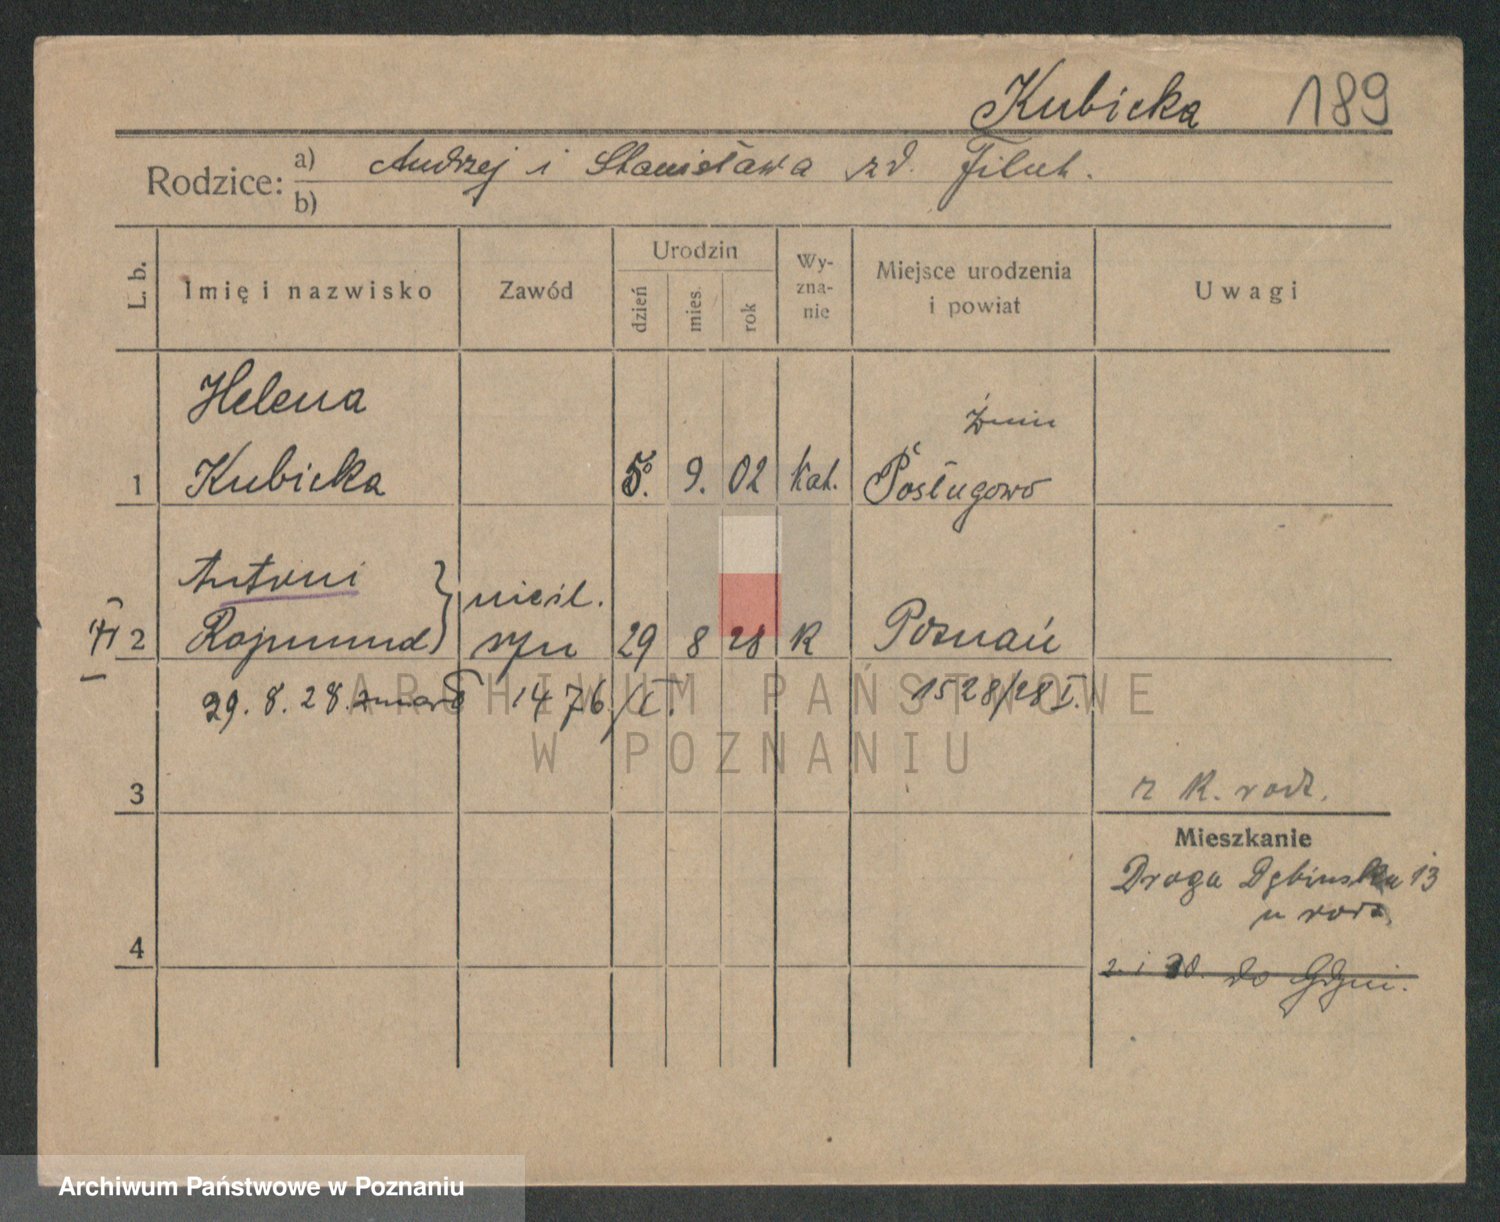 Kubicka 189
Rodzice: a) Andrzej i Stanisława zd. Filut.
b)
L. b.
Imię i nazwisko
Zawód
Urodzin
dzień
mies.
rok
Wy-
zna-
nie
Miejsce urodzenia
i powiat
Uwagi
Helena
Żnin
1 Kubicka 5. 9. 02 kat. Posługowo
Antoni } nieśl.
2 Rajmund syn 29 8 28 K Poznań
29. 8. 28. zmarł 1476/I. 1528/28 I.
3
z K. rodz.
Mieszkanie
Droga Dębińska 13
u rodz.
4
2. i 30. do Gdyni.
ARCHIWUM PAŃSTWOWE
W POZNANIU
Archiwum Państwowe w Poznaniu